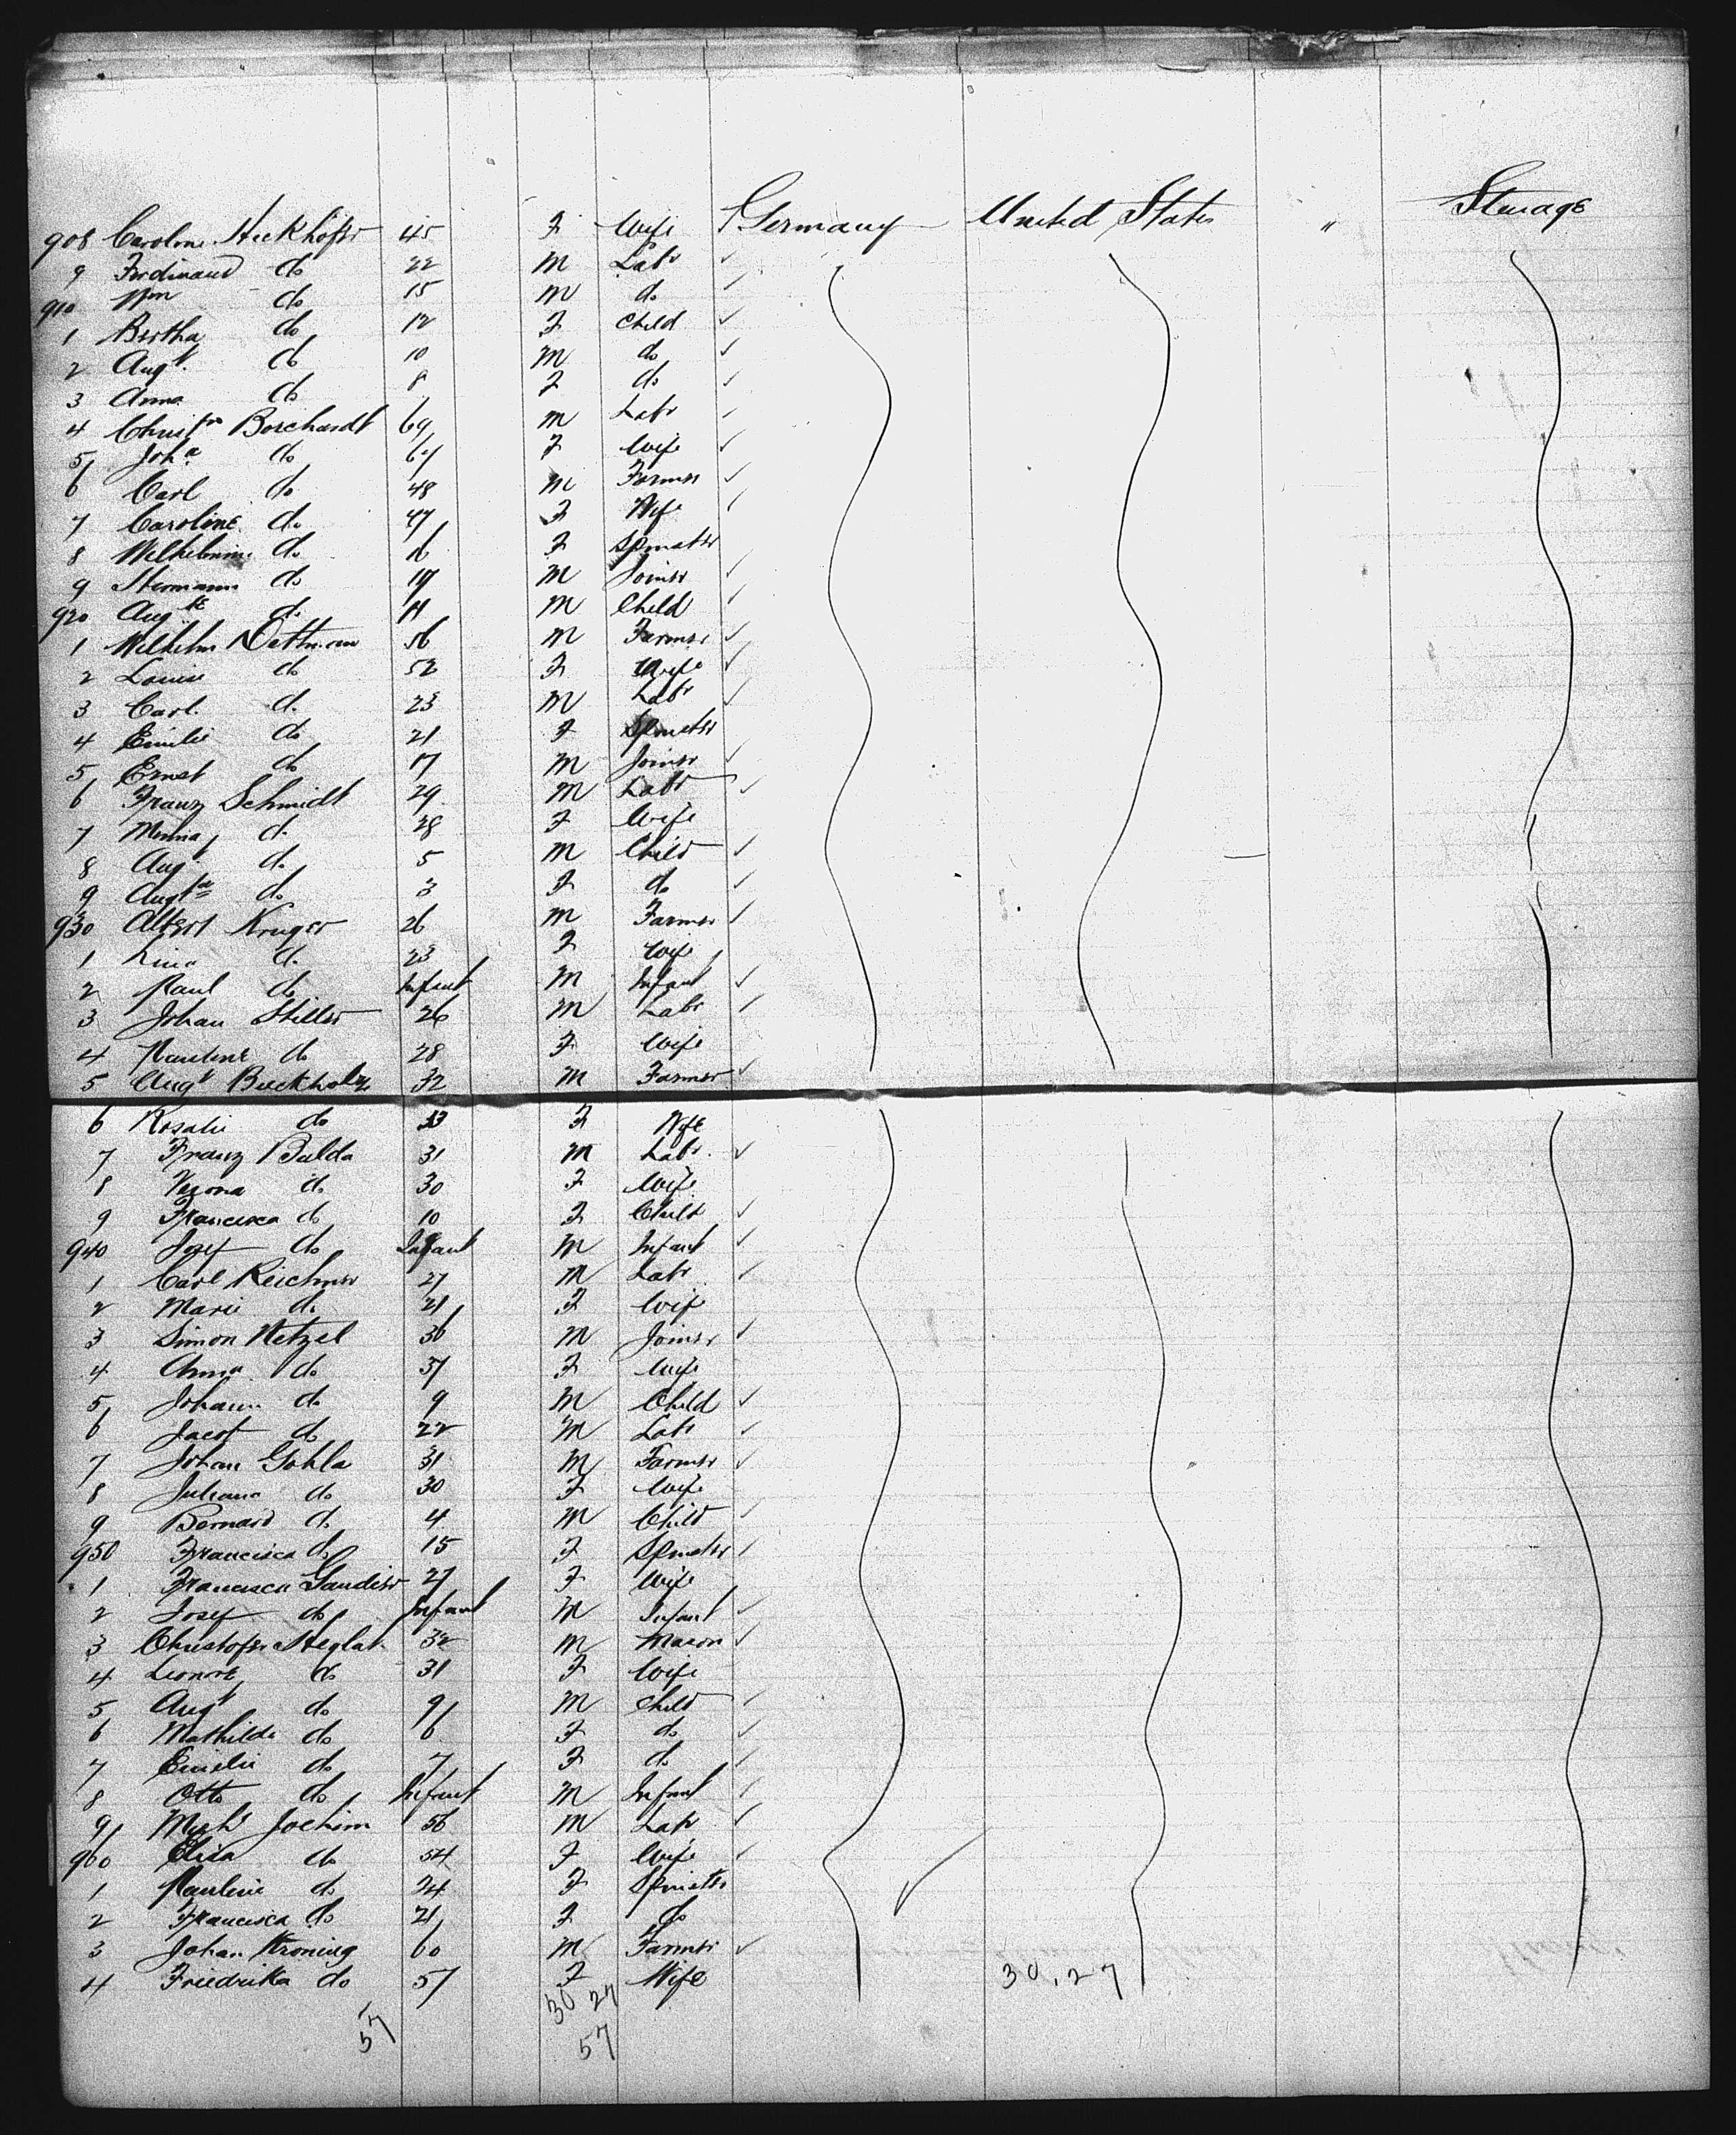 908 Caroline Heckhöfer 45 F Wife Germany United States " Sterage
9 Ferdinand do 22 M Labr
910 Wm do 15 M do
1 Bertha do 12 F Child
2 Augt do 10 M do
3 Anna do 8 F do
4 Christn Borchardt 69 M Labr
5 Joha do 64 F Wife
6 Carl do 48 M Farmer
7 Caroline do 47 F Wife
8 Wilhelmine do 16 F Spinster
9 Hermann do 19 M Joiner
920 Augte do 11 M Child
1 Wilhelm Dettman 56 M Farmer
2 Louise do 52 F Wife
3 Carl do 23 M Labr
4 Emilie do 21 F Spinster
5 Ernst do 17 M Joiner
6 Franz Schmidt 29 M Labr
7 Minna do 28 F Wife
8 Augt do 5 M Child
9 Augta do 3 F do
930 Albert Kruger 26 M Farmer
1 Lina do 23 F Wife
2 Paul do Infant M Infant
3 Johan Stiller 26 M Labr
4 Pauline do 28 F Wife
5 Augt Buckholz 32 M Farmer
6 Rosalie do 33 F Wife
7 Franz Balda 31 M Labr
8 Verona do 30 F Wife
9 Francisca do 10 F Child
940 Josef do Infant M Infant
1 Carl Reichner 27 M Labr
2 Marie do 21 F Wife
3 Simon Netzel 36 M Joiner
4 Anna do 37 F Wife
5 Johann do 9 M Child
6 Jacob do 22 M Labr
7 Johan Gohla 31 M Farmer
8 Juliana do 30 F Wife
9 Bernard do 4 M Child
950 Francisca do 15 F Spinster
1 Francisca Gandier 27 F Wife
2 Josef do Infant M Infant
3 Christofer Steglat 32 M Mason
4 Leonore do 31 F Wife
5 Augt do 9 M Child
6 Mathilde do 6 F do
7 Emilie do 7 F do
8 Otto do Infant M Infant
9 Michl Jochim 56 M Labr
960 Elisa do 54 F Wife
1 Pauline do 24 F Spinster
2 Francisca do 21 F do
3 Johan Kroning 60 M Farmer
4 Friedrika do 57 F Wife 30.27
57 30 27
57